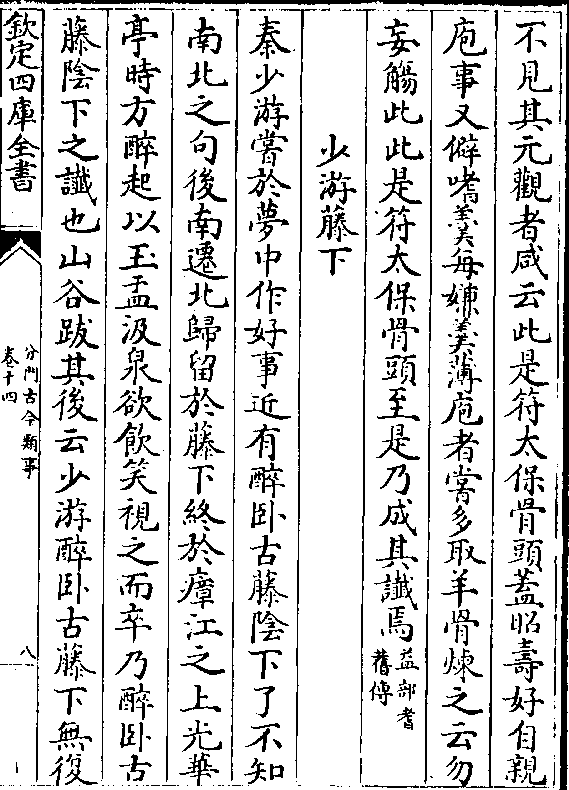 不見其元觀者咸云此是符太保骨頭蓋昭壽好自親
庖事又僻嗜羮每嫌羮薄庖者嘗多取羊骨煉之云勿
妄觴此此是符太保骨頭至是乃成其讖焉益部耆
舊傳
少游藤下
秦少游嘗於夢中作好事近有醉卧古藤陰下了不知
南北之句後南遷北歸留於藤下終於瘴江之上光華
亭時方醉起以玉盂汲泉欲飲笑視之而卒乃醉卧古
藤陰下之讖也山谷跋其後云少游醉卧古藤下無復
欽定四庫全書
分門古今類事
卷十四
八